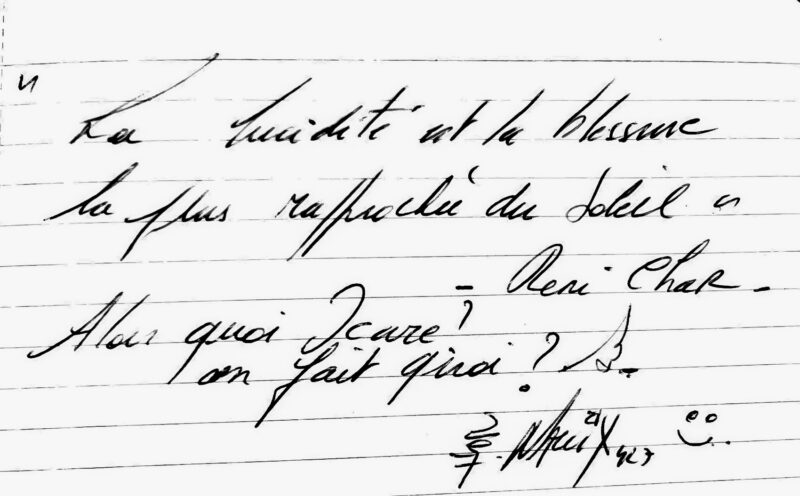 " La lucidité est la blessure
la plus rapprochée du soleil "
- René Char -
Alors quoi Icare ?
on fait quoi ?